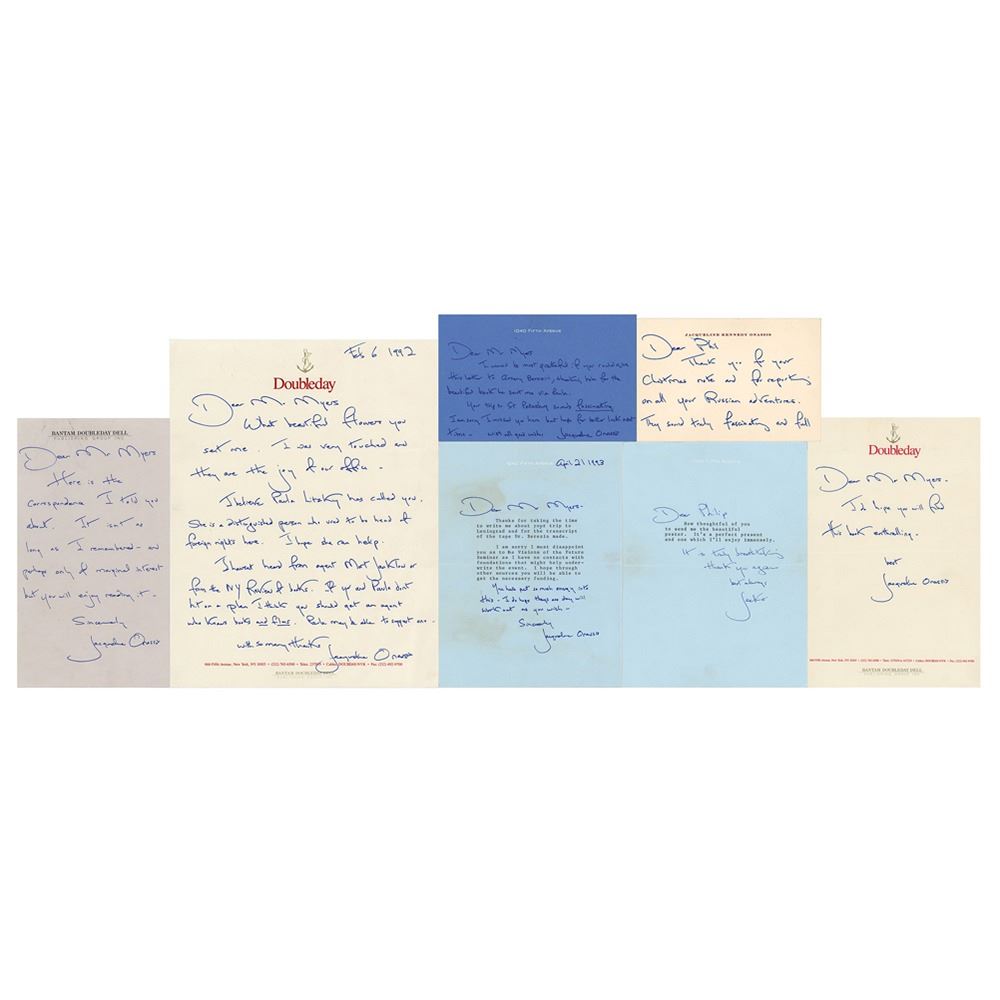 BANTAM DOUBLEDAY DELL
PUBLISHING GROUP, INC.
Dear Mr. Myers
Here is the
correspondence I told you
about. It isn't as
long as I remembered – and
perhaps only of marginal interest
but you will enjoy reading it –
Sincerely
Jacqueline Onassis
Feb 6 1992
Doubleday
Dear Mr. Myers
What beautiful flowers you
sent me. I was very touched and
they are the joy of our office –
I believe Paula Litzky has called you.
She is a distinguished person who used to be head of
foreign rights here. I hope she can help.
I haven't heard from agent
from the NY Review of books. If you and Paula don't
hit on a plan I think you should get an agent
who knows books and films. Paula may be able to suggest one –
with so many thanks
Jacqueline Onassis
666 Fifth Avenue, New York, NY 10103 • (212) 765-6500 • Telex 237019 • Cable: DOUBDAY NYK • Fax: (212) 492-9700
BANTAM DOUBLEDAY DELL
PUBLISHING GROUP, INC.
1040 FIFTH AVENUE
Dear Mr. Myers
I would be most grateful if you could give
this letter to Antony Berezin, thanking him for the
beautiful book he sent me via Paula.
Your trip to St Petersburg sounds fascinating
I am sorry I missed you here but hope for better luck next
time – with all good wishes Jacqueline Onassis
JACQUELINE KENNEDY ONASSIS
Dear Phil
Thank you for your
Christmas note and for reporting
on all your Russian adventures.
They sound truly fascinating and full
1040 FIFTH AVENUE
April 21 1993
Dear Mr. Myers.
Thanks for taking the time
to write me about your trip to
Leningrad and for the transcript
of the tape Dr. Berezin made.
I am sorry I must disappoint
you as to the Visions of the Future
Seminar as I have no contacts with
foundations that might help under-
write the event. I hope through
other sources you will be able to
get the necessary funding.
You have put so much energy into
this – I do hope things one day will
work out as you wish –
Sincerely
Jacqueline Onassis
1040 FIFTH AVENUE
Dear Philip
How thoughtful of you
to send me the beautiful
poster. It's a perfect present
and one which I'll enjoy immensely.
It is truly breathtaking
thank you again
Jackie
Doubleday
Dear Mr. Myers.
I do hope you will find
this book enthralling.
best
Jacqueline Onassis
666 Fifth Avenue, New York, NY 10103 • (212) 765-6500 • Telex 237019 • Cable: DOUBDAY NYK • Fax: (212) 492-9700
BANTAM DOUBLEDAY DELL
PUBLISHING GROUP, INC.